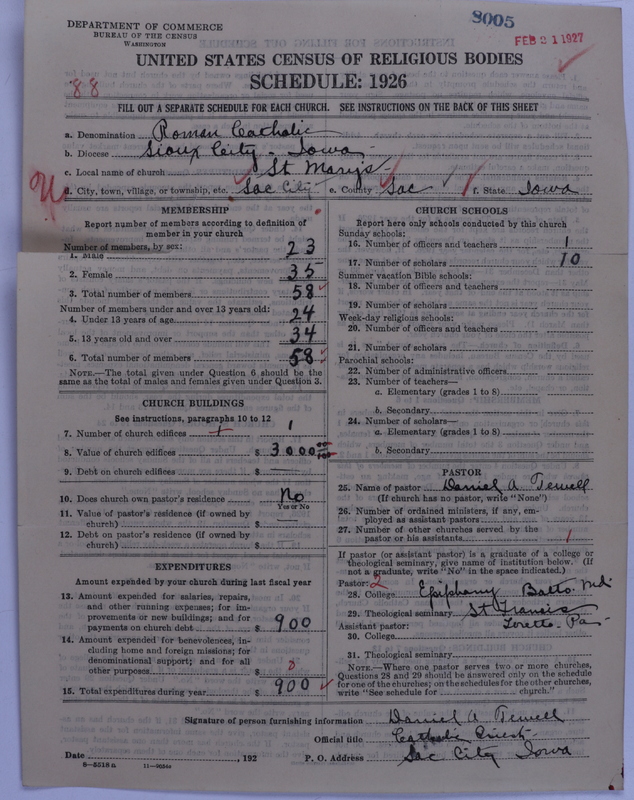 DEPARTMENT OF COMMERCE
BUREAU OF THE CENSUS
WASHINGTON
8005
FEB 21 1927
UNITED STATES CENSUS OF RELIGIOUS BODIES
SCHEDULE: 1926
88
FILL OUT A SEPARATE SCHEDULE FOR EACH CHURCH. SEE INSTRUCTIONS ON THE BACK OF THIS SHEET
a. Denomination Roman Catholic
b. Diocese Sioux City - Iowa
c. Local name of church St Mary's
d. City, town, village, or township, etc. Sac City e. County Sac f. State Iowa
MEMBERSHIP
Report number of members according to definition of
member in your church
Number of members, by sex:
1. Male 23
2. Female 35
3. Total number of members 58
Number of members under and over 13 years old:
4. Under 13 years of age 24
5. 13 years old and over 34
6. Total number of members 58
NOTE.—The total given under Question 6 should be the
same as the total of males and females given under Question 3.
CHURCH BUILDINGS
See instructions, paragraphs 10 to 12
7. Number of church edifices 1 1
8. Value of church edifices $ 3000 00/100
9. Debt on church edifices $
10. Does church own pastor's residence No
Yes or No
11. Value of pastor's residence (if owned by
church) $
12. Debt on pastor's residence (if owned by
church) $
EXPENDITURES
Amount expended by your church during last fiscal year
13. Amount expended for salaries, repairs,
and other running expenses; for im-
provements or new buildings; and for
payments on church debt $ 900
14. Amount expended for benevolences, in-
cluding home and foreign missions; for
denominational support; and for all
other purposes $ 0
15. Total expenditures during year $ 900
CHURCH SCHOOLS
Report here only schools conducted by this church
Sunday schools:
16. Number of officers and teachers 1
17. Number of scholars 10
Summer vacation Bible schools:
18. Number of officers and teachers
19. Number of scholars
Week-day religious schools:
20. Number of officers and teachers
21. Number of scholars
Parochial schools:
22. Number of administrative officers
23. Number of teachers—
a. Elementary (grades 1 to 8)
b. Secondary
24. Number of scholars—
a. Elementary (grades 1 to 8)
b. Secondary
PASTOR
25. Name of pastor Daniel A Tewell
(If church has no pastor, write "None")
26. Number of ordained ministers, if any, em-
ployed as assistant pastors
27. Number of other churches served by the
pastor or his assistants 1
If pastor (or assistant pastor) is a graduate of a college or
theological seminary, give name of institution below. (If
not a graduate, write "No" in the space indicated.)
Pastor: 2
28. College Epiphany Balto. Md.
29. Theological seminary St Francis
Assistant pastor: Loretto Pa
30. College
31. Theological seminary
NOTE.—Where one pastor serves two or more churches,
Questions 28 and 29 should be answered only on the schedule
for one of the churches; on the schedules for the other churches,
write "See schedule for church."
Signature of person furnishing information Daniel A Tewell
Official title Catholic Priest
Date , 192 P. O. Address Sac City Iowa
8-5518a